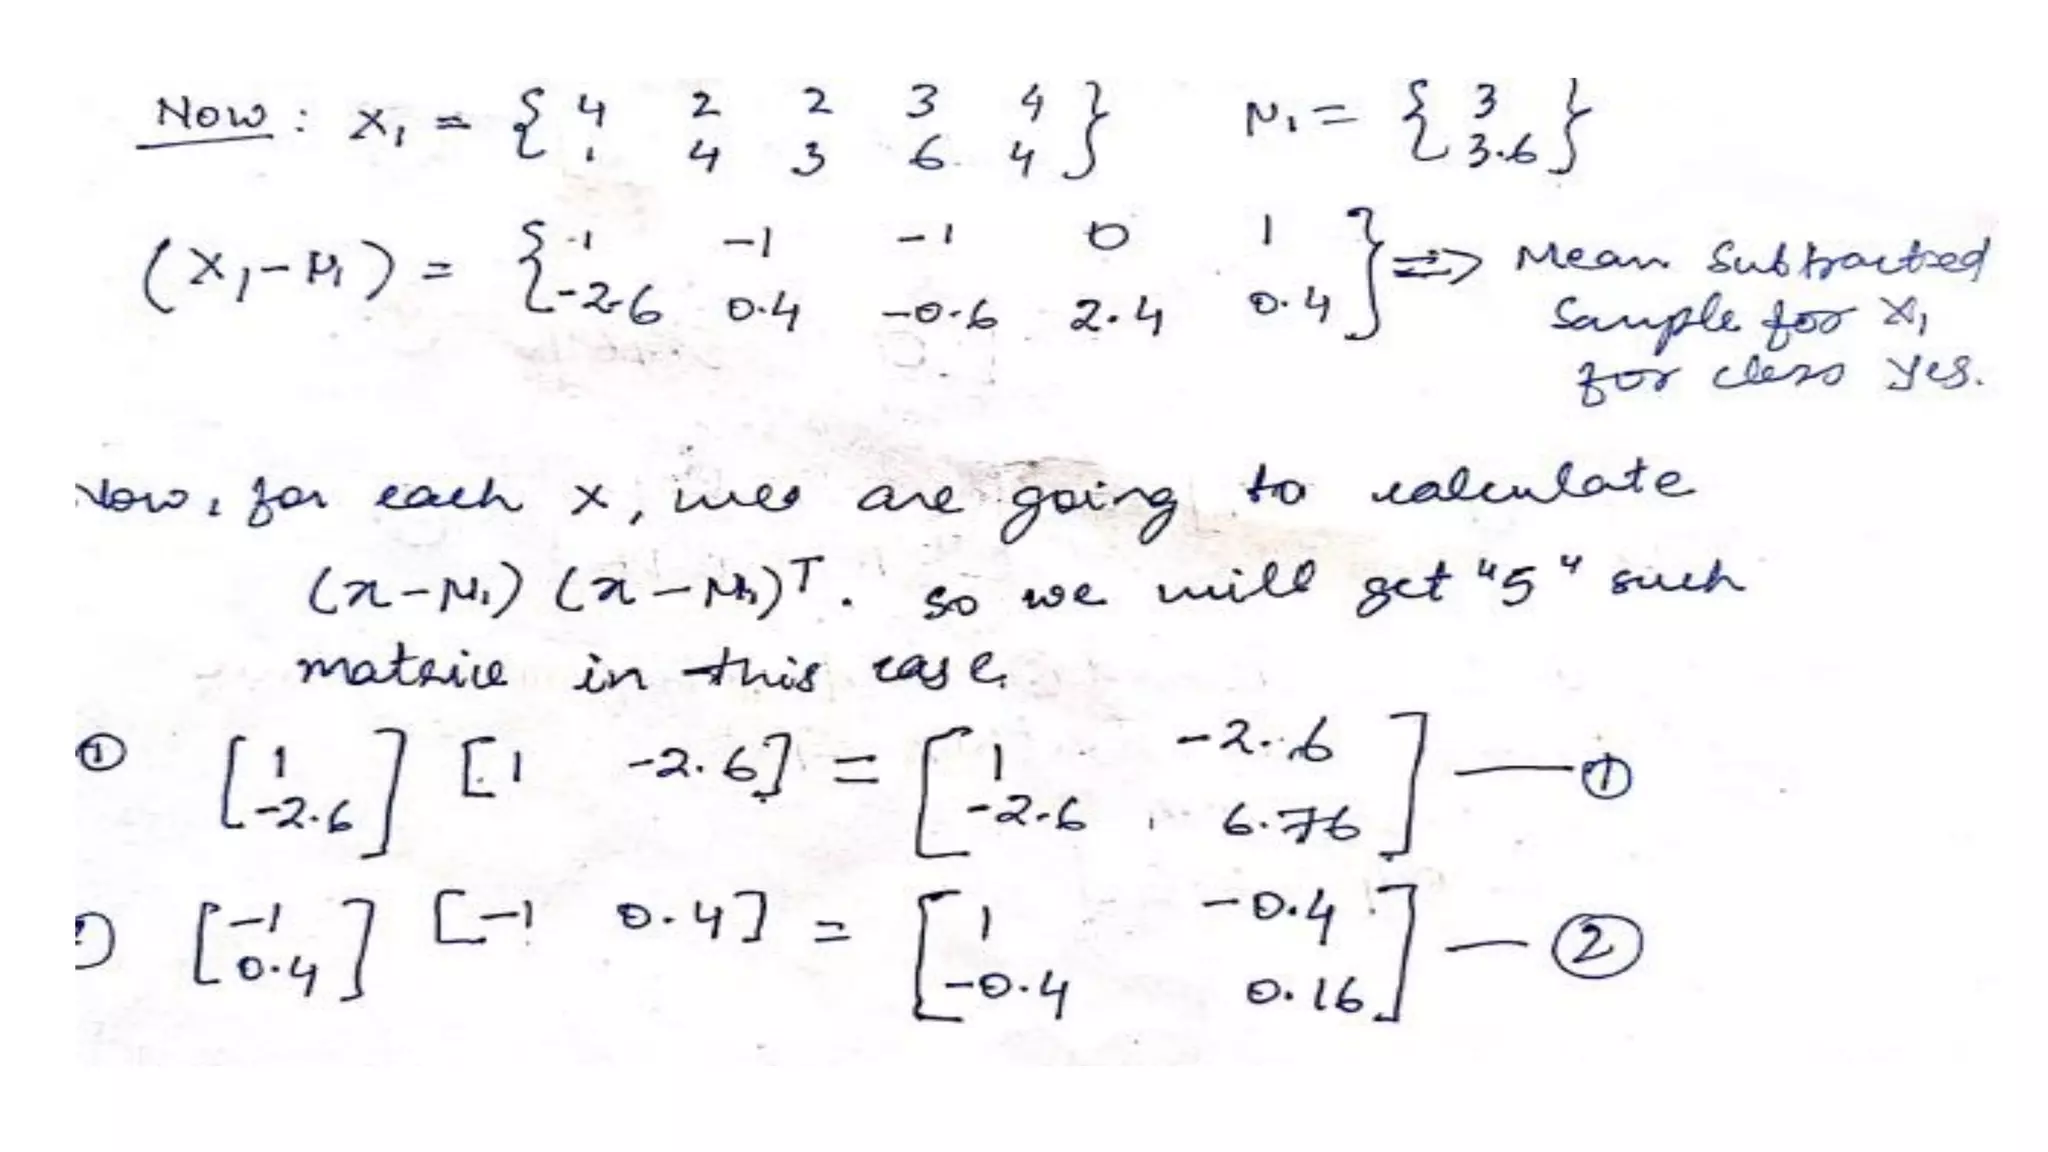 Now : X₁ = { 4 2 2 3 4 } μ₁ = { 3 }
{ 1 4 3 6 4 } { 3.6 }
(X₁ - μ₁) = { 1 -1 -1 0 1 } => Mean Subtracted
{ -2.6 0.4 -0.6 2.4 0.4 } Sample for X₁
for class Yes.
Now, for each x, we are going to calculate
(x - μ₁) (x - μ₁)ᵀ. so we will get "5" such
matrice in this case.
① [ 1 ] [ 1 -2.6 ] = [ 1 -2.6 ] — ①
[ -2.6 ] [ -2.6 6.76 ]
② [ -1 ] [ -1 0.4 ] = [ 1 -0.4 ] — ②
[ 0.4 ] [ -0.4 0.16 ]